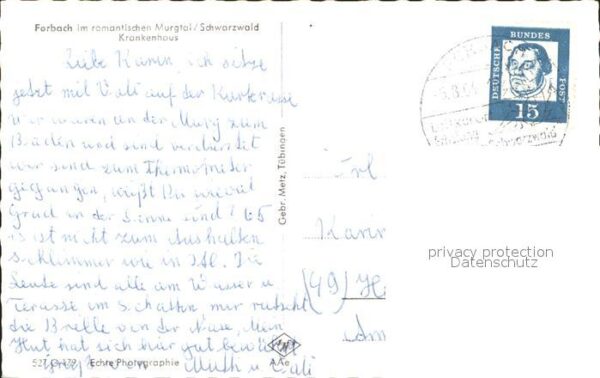 Forbach im romantischen Murgtal/Schwarzwald
Krankenhaus
Liebe Karin, ich sitze
jetzt mit Vati auf der Kurterasse
wir waren an der Murg zum
Baden und sind verdurstet
wir sind zum Thermometer
gegangen, weißt Du wieviel
Grad in der Sonne sind? 65
es ist nicht zum Aushalten
schlimmer wie in Jtl. Die
Leute sind alle am Wasser u
Terasse im Schatten mir rutscht
die Brille von der Nase, Mein
Hut hat sich hier gut
Grüße von Mutti u Vati
Echte Photographie
AAe
Gebr. Metz, Tübingen
DEUTSCHE
BUNDES
POST
15
Schwarzwald
Frl
Karin
(49)
privacy protection
Datenschutz